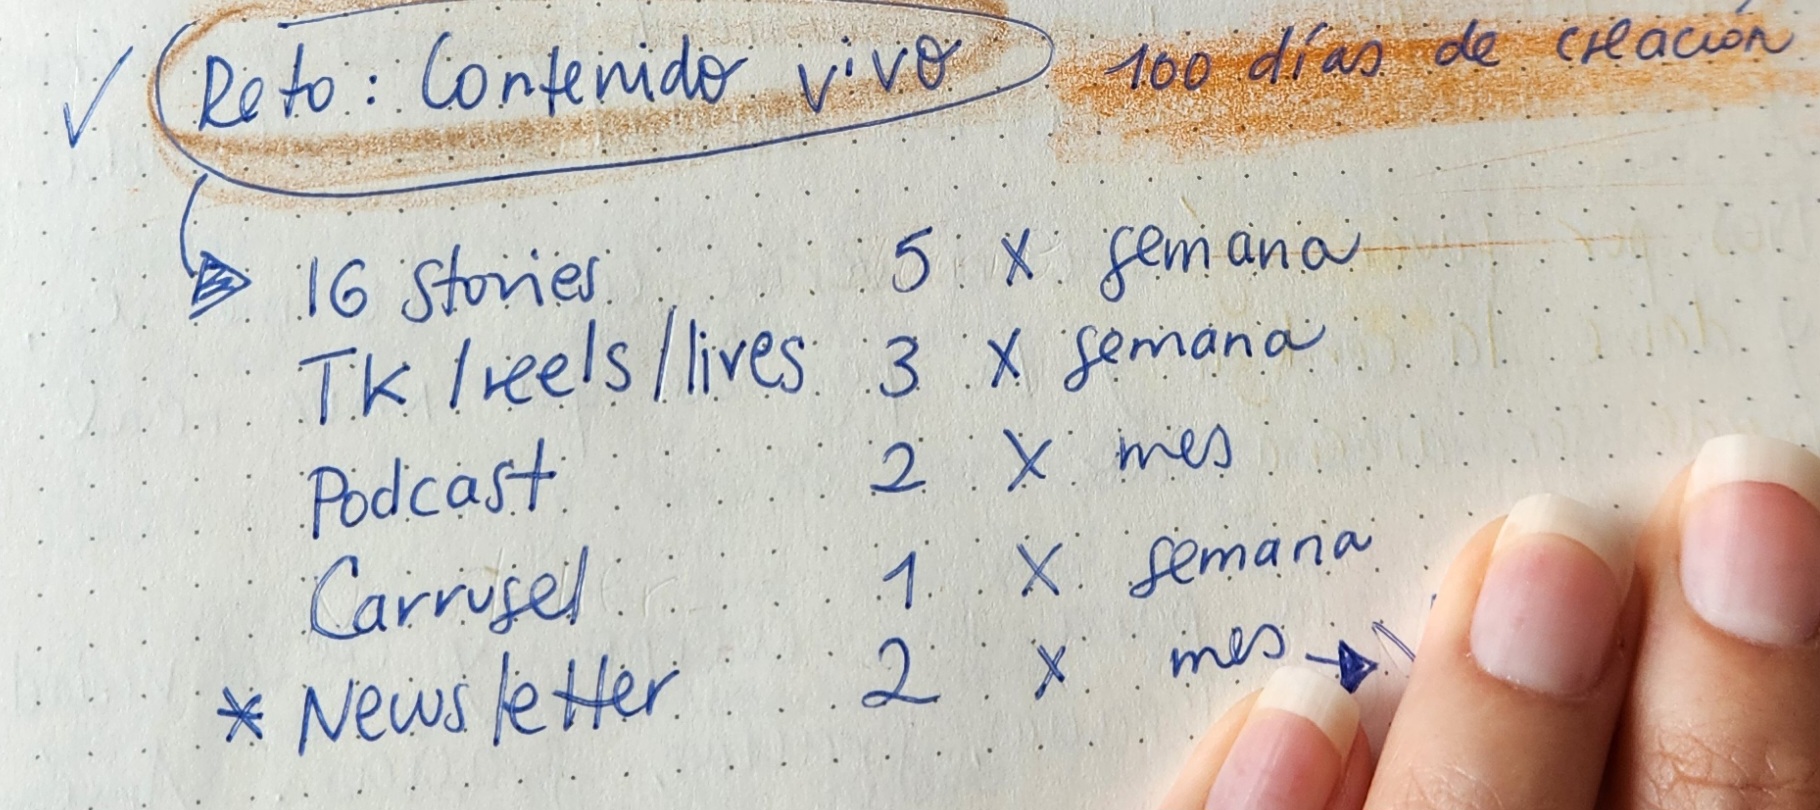 ✓ Reto: Contenido vivo 100 días de creación
IG stories 5 x semana
TK/reels/lives 3 x semana
Podcast 2 x mes
Carrusel 1 x semana
* Newsletter 2 x mes →